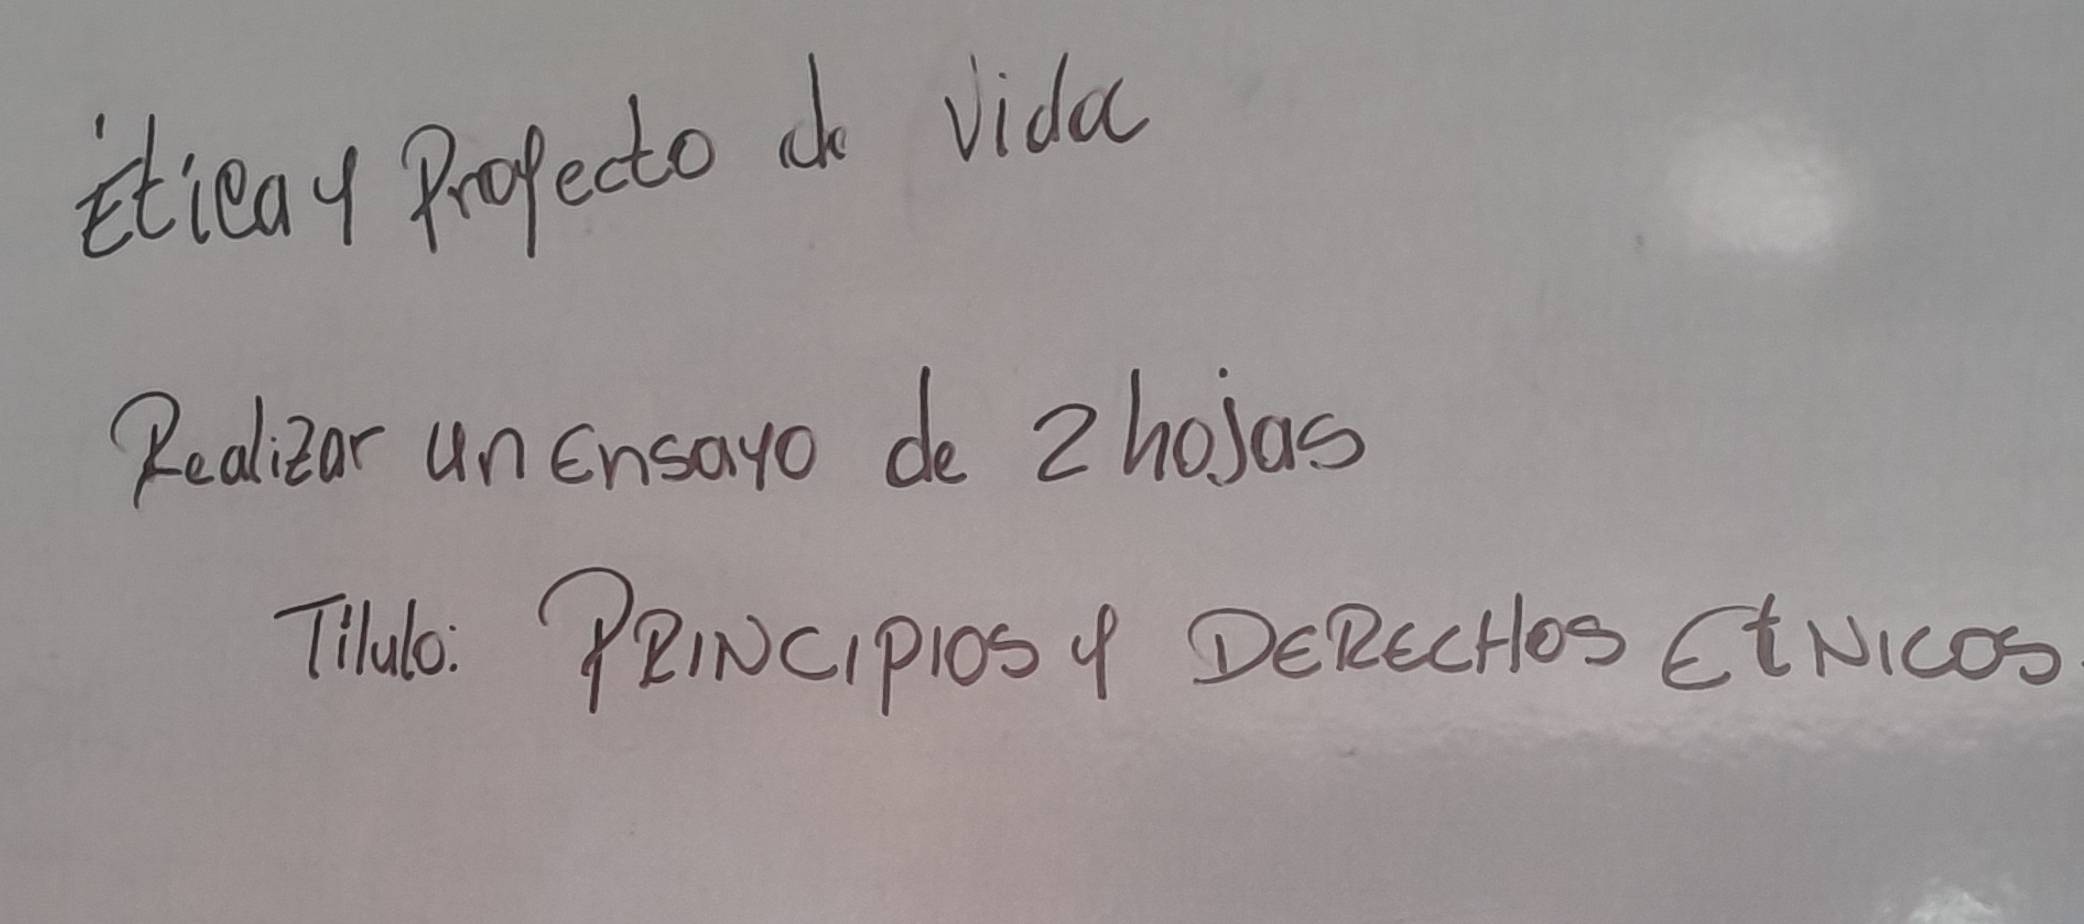 Ética y Proyecto de Vida
Realizar un Ensayo de 2 hojas
Título: PRINCIPIOS y DERECHOS EtNICOS.